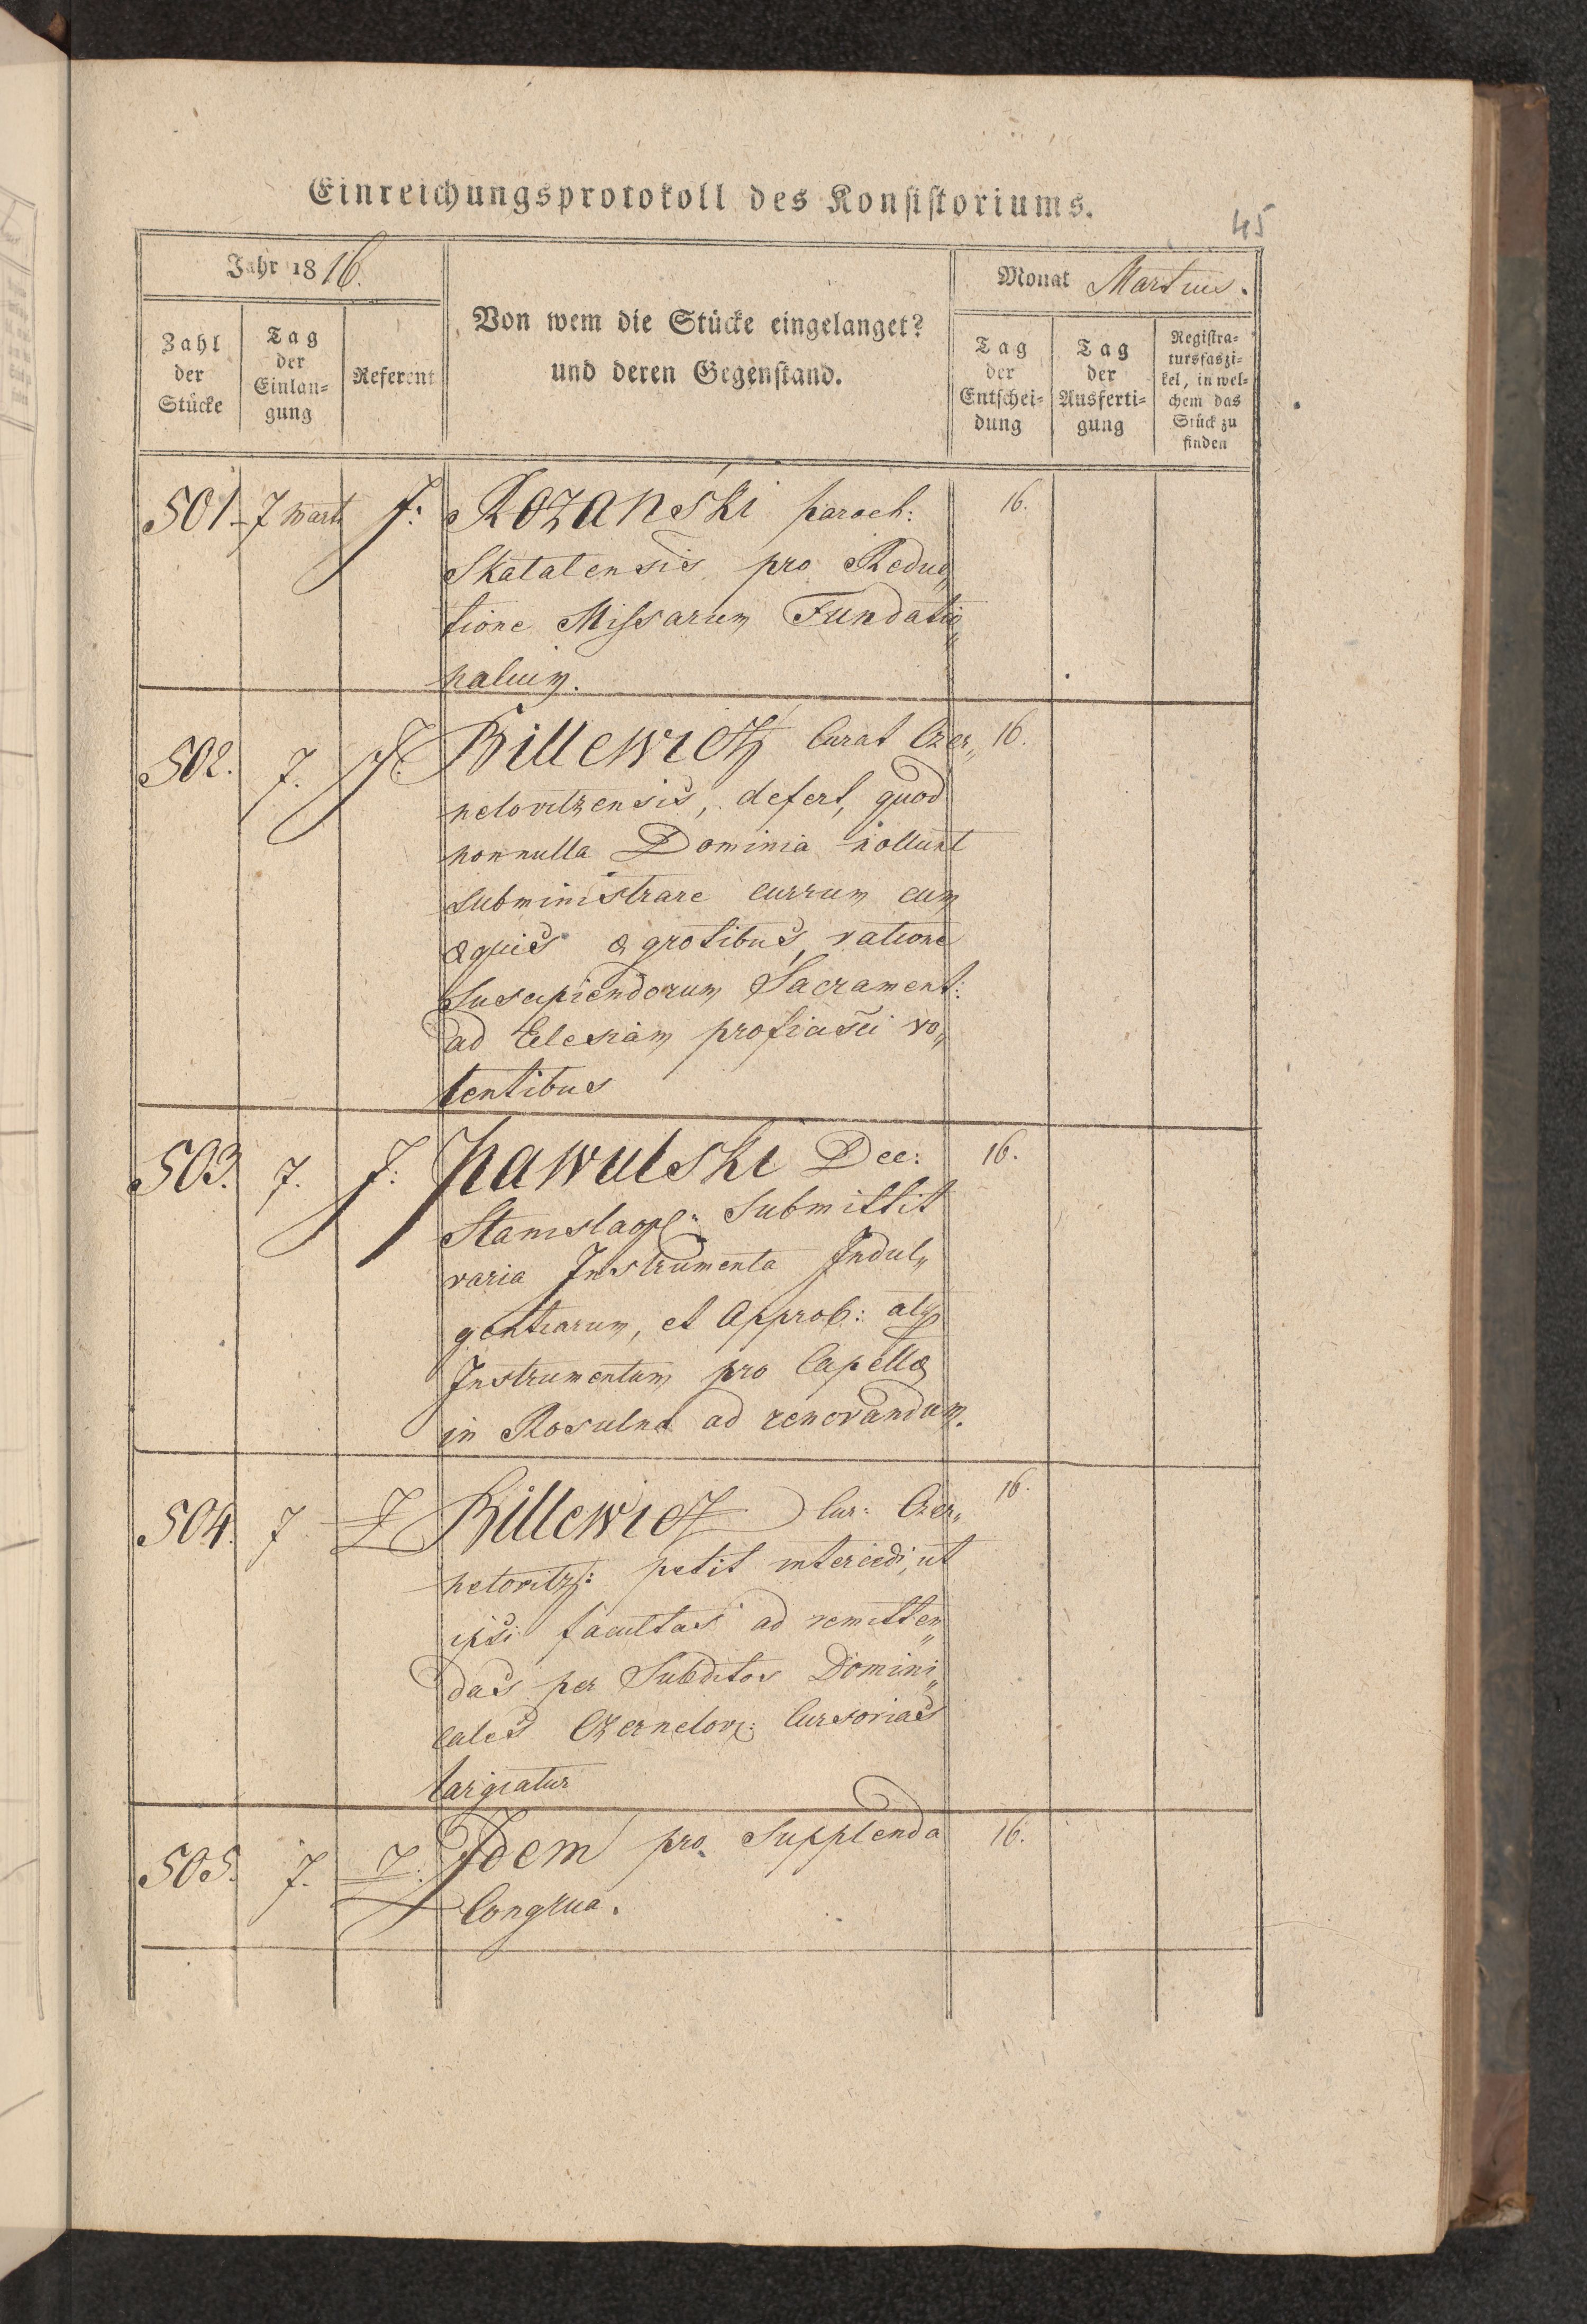 Einreichungsprotokoll des Konsistoriums.
45
Jahr 1816.
Monat Martius.
Zahl der Stücke
Tag der Einlan= gung
Referent
Von wem die Stücke eingelanget?
und deren Gegenstand.
Tag der Entschei= dung
Tag der Ausferti= gung
Registra= tursfaszi= kel, in wel= chem das Stück zu finden
501 7 Marti J: Rozański paroch: 16.
Skalatensis pro Reduc„
tione Missarum Fundatio„
nalium.
502. 7. J: Billewicz Curat Czer„ 16.
nelovitzensis, defert, quod
nonnulla Dominia nollunt
subministrare currum cum
æquis ægrotibus, ratione
Suscipiendorum Sacrament:
ad Eclesiam proficisci vo„
lentibus
503. 7. J: Pawulski Dec: 16.
Stanislaop: Submittit
varia Instrumenta Indul„
gentiarum, et Approb: atq
Instrumentum pro Capella
in Rosulna ad renovandum.
504. 7 J Billewicz Cur: Czer„ 16.
nelovitz: petit intercedi, ut
ipsi facultas ad remitten„
das per Subditos Domini„
cales Czernelov: Cursorias
largiatur
505. 7. J. Idem pro Supplenda 16.
Congrua.